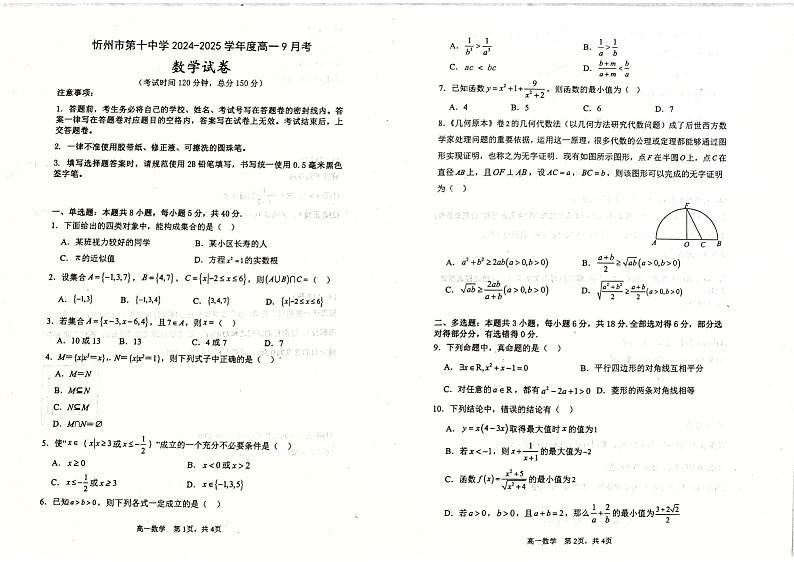 忻州市第十中学 2024-2025 学年度高一 9 月考
数学试卷
(考试时间 120 分钟，总分 150 分)
注意事项：
1. 答题前，考生务必将自己的学校、姓名、考试号写在答题卷的密封线内。答
案一律写在答题卷对应题目的空格内，答案写在试卷上无效。考试结束后，上
交答题卷。
2. 一律不准使用胶带纸、修正液、可擦洗的圆珠笔。
3. 填写选择题答案时，请规范使用 2B 铅笔填写，书写统一使用 0.5 毫米黑色
签字笔。
一、单选题：本题共 8 小题，每小题 5 分，共 40 分.
1. 下面给出的四类对象中，能构成集合的是（ ）
A．某班视力较好的同学 B．某小区长寿的人
C．π的近似值 D．方程 x²=1的实数根
2．设集合 A={-1,3,7}，B={4,7}，C={x|-2≤x≤6}，则(A∪B)∩C=（ ）
A．{-1,3} B．{-1,3,4} C．{3,4,7} D．{x|-2≤x≤6}
3．若集合 A={x-3,x-6,4}，且 7∈A，则 x=（ ）
A．10 或 13 B．13 C．4 或 7 D．7
4．M={x|x²=x}，N={x|x²=1}，则下列式子中正确的是（ ）
A．M=N
B．M⊆N
C．N⊆M
D．M∩N=∅
5．使"x∈{x|x≥3或x≤-1/2}"成立的一个充分不必要条件是（ ）
A．x≥0 B．x<0或x>2
C．x≤-1/2或x≥3 D．x∈{-1,3,5}
6．已知a>b>0，则下列各式一定成立的是（ ）
高一数学 第 1页，共 4页
A．1/b³>1/a³ B．1/a>1/b
C．ac < bc D．(b+m)/(a+m)<b/a
7．已知函数 y=x²+1+9/(x²+2)，则函数的最小值为（ ）
A．4 B．5 C．6 D．7
8.《几何原本》卷 2 的几何代数法（以几何方法研究代数问题）成了后世西方数
学家处理问题的重要依据，运用这一原理，很多代数的公理或定理都能够通过图
形实现证明，也称之为无字证明．现有如图所示图形，点F在半圆O上，点C在
直径AB上，且OF⊥AB，设AC=a，BC=b，则该图形可以完成的无字证明
为（ ）
F
A O C B
A．a²+b²≥2ab(a>0,b>0) B．(a+b)/2≥√(ab)(a>0,b>0)
C．√(ab)≥2ab/(a+b)(a>0,b>0) D．√((a²+b²)/2)≥(a+b)/2(a>0,b>0)
二、多选题：本题共 3 小题，每小题 6 分，共 18 分.全部选对得 6 分，部分选
对得部分分，有选错得 0 分.
9．下列命题中，真命题的是（ ）
A．∃x∈R,x²+x-1=0 B．平行四边形的对角线互相平分
C．对任意的a∈R，都有a²-2a+1>0 D．菱形的两条对角线相等
10．下列结论中，错误的结论有（ ）
A．y=x(4-3x)取得最大值时x的值为1
B．若x<-1，则x+1/(x+1)的最大值为-2
C．函数f(x)=(x²+5)/√(x²+4)的最小值为2
D．若a>0，b>0，且a+b=2，那么1/a+2/b的最小值为(3+2√2)/2
高一数学 第 2页，共 4页